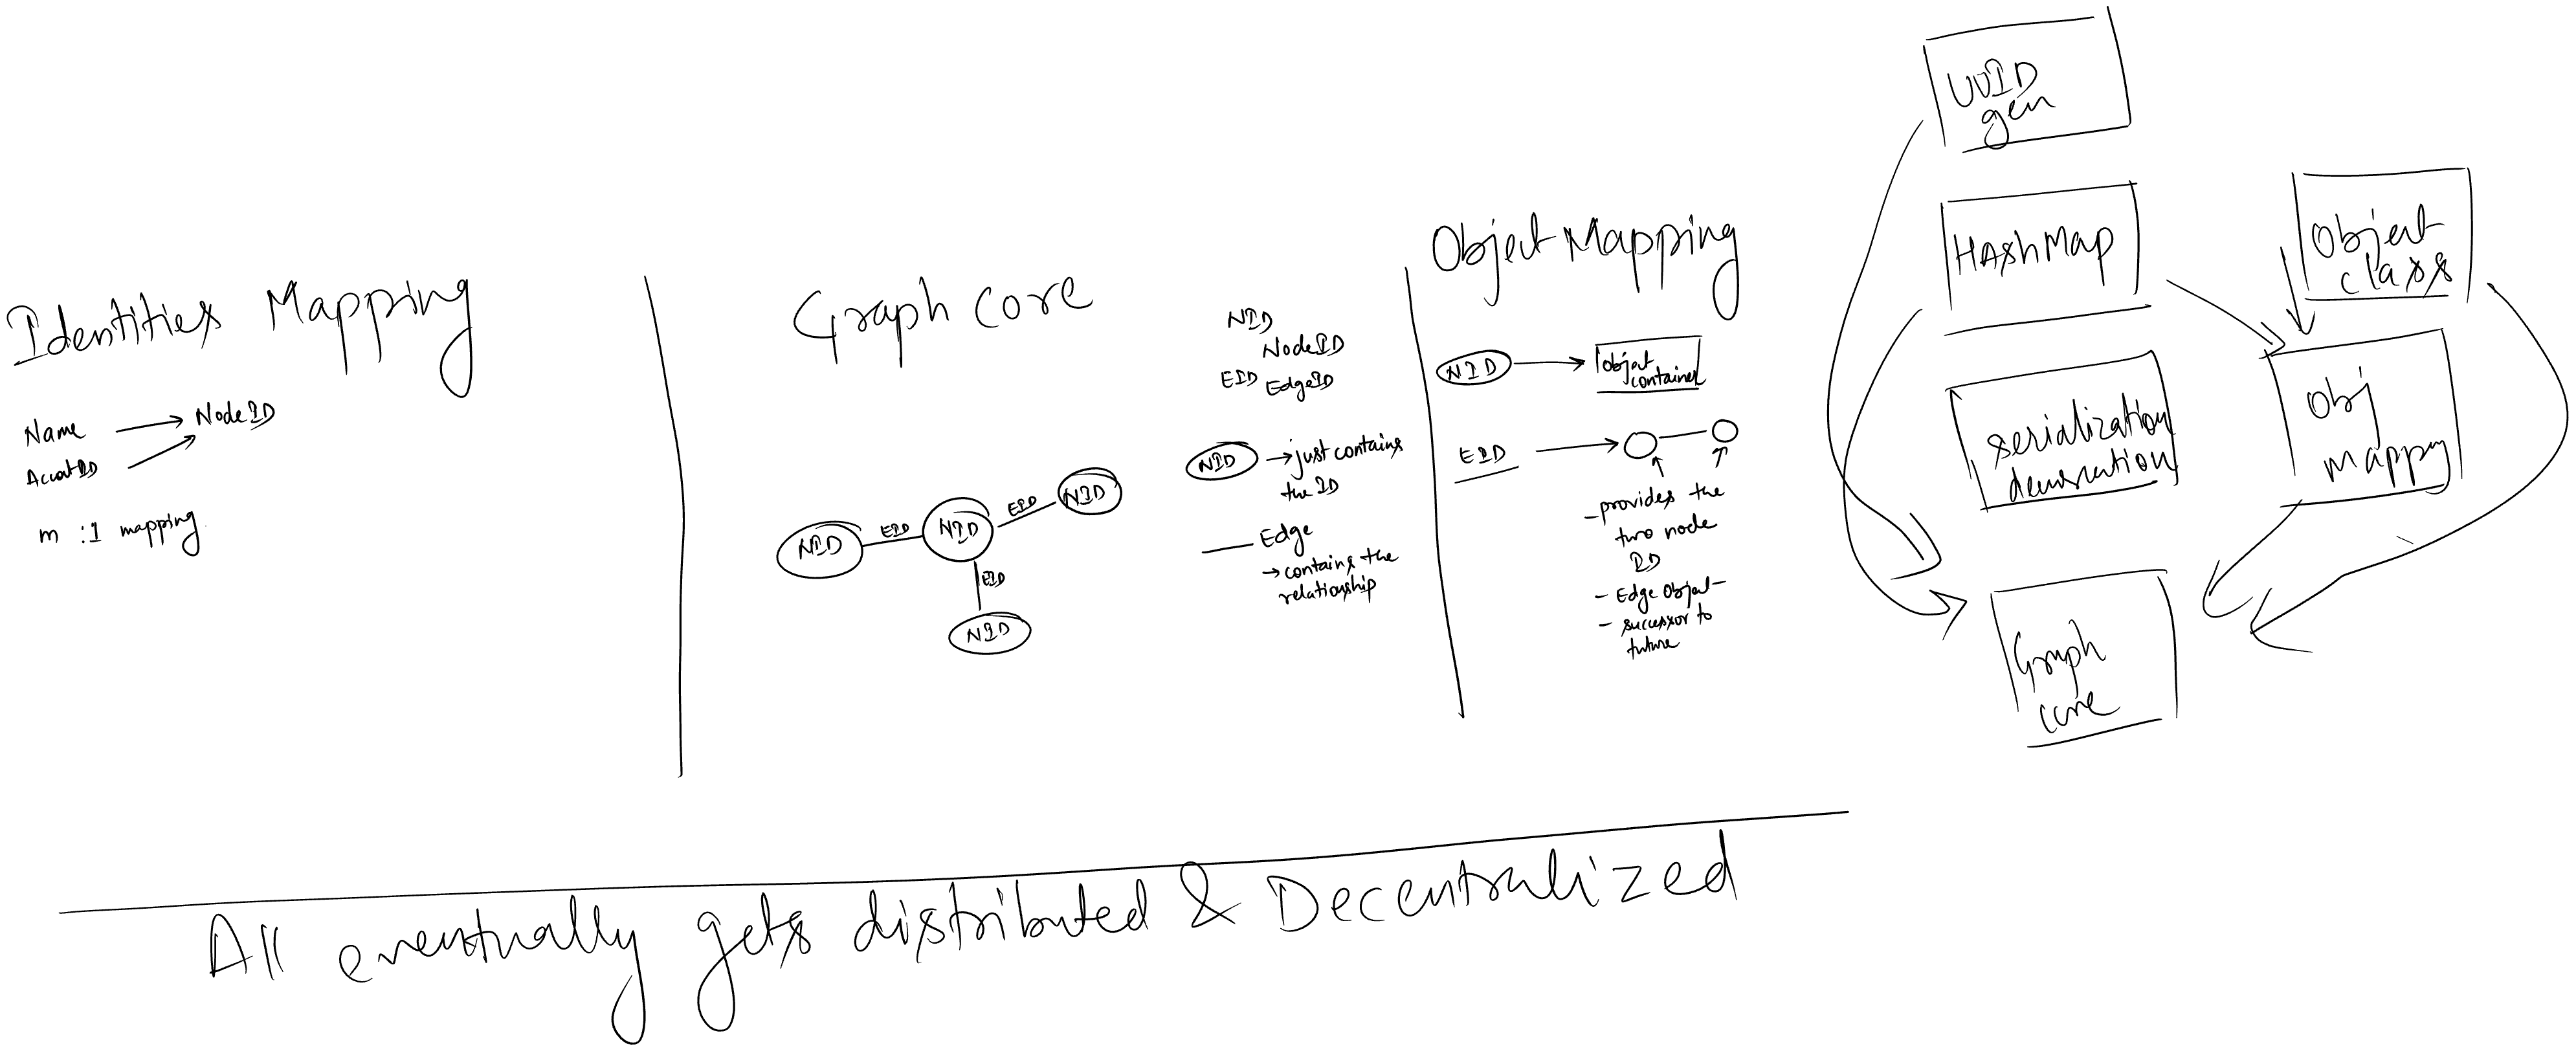 Identities Mapping
Name
NodeID
m :1 mapping
Graph core
NID
NodeID
EID
EdgeID
NID
EID
NID
EID
NID
EID
NID
NID
→ just contains
the ID
Edge
→ contains the
relationship
Object Mapping
NID
object
container
EID
- provides the
two node
ID
- Edge Object -
- successor to
future
UUID
gen
HashMap
Object
class
serialization
Obj
Mappy
Graph
core
All eventually gets distributed & Decentralized